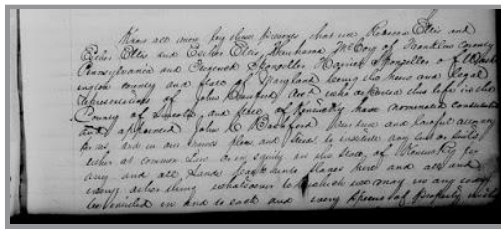 Know all men by these presents that we Rebecca Ellis and
Esther Ellis and Esther Ellis, McCoy of Franklin County
Pennsylvania and Spangler Harriet Spangler of Wash
ington county and State of Maryland being the heirs and legal
representatives of John decd who departed this life in the
County of Lincoln and State of Kentucky have nominated constituted
and appointed John C our true and lawful attorney
for us, and in our names place and stead to institute any suit or suits
either at common Law or in equity in the State of Kentucky for
any and all Lands slaves hire and all and
every other thing whatsoever to which we may in any way
be entitled in and to each and every species of property